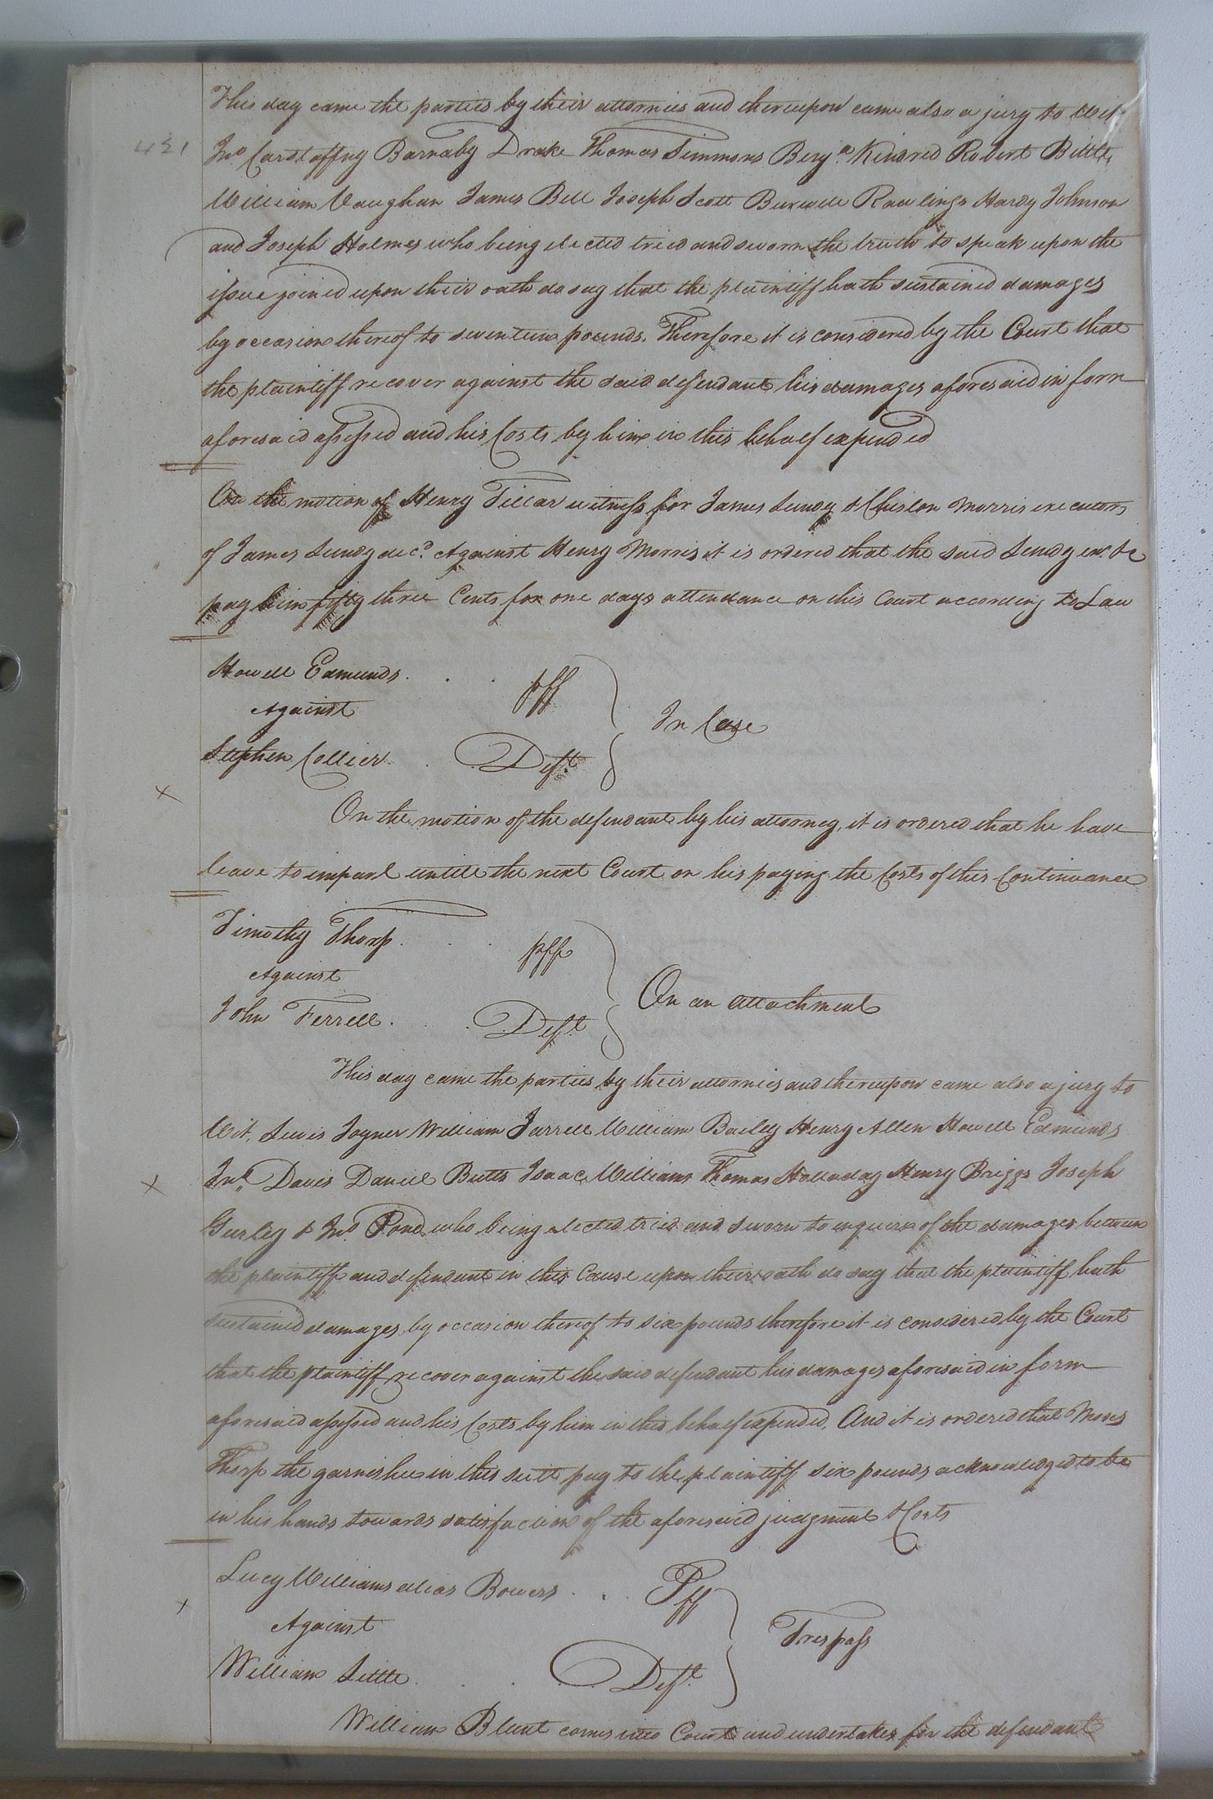 This day came the parties by their attornies and thereupon came also a jury to Wit
421
Jno Carstaffny Barnaby Drake Thomas Simmons Benja Kindred Robert Bittle
William Vaughan James Bell Joseph Scott Burwell Rawlings Hardy Johnson
and Joseph Holmes who being elected tried and sworn the truth to speak upon the
issue joined upon their oath do say that the plaintiff hath sustained damages
by occasion thereof to seventeen pounds. Therefore it is considered by the Court that
the plaintiff recover against the said defendant his damages aforesaid in form
aforesaid assessed and his Costs by him in this behalf expended
On the motion of Henry Tillar witness for James Lundy & Morris executors
of James Lundy decd. Against Henry Morris it is ordered that the said Lundy exr &c
pay him fifty three Cents for one days attendance on this Court according to Law
Howell Edmunds . . . pff
Against
In Case
Stephen Collier . . Deft
On the motion of the defendant by his attorney, it is ordered that he have
leave to imparl untill the next Court on his paying the Costs of this Continuance
Timothy Thorp . . . pff
Against
On an attachment
John Ferrell . . . Deft
This day came the parties by their attornies and thereupon came also a jury to
Wit, Lewis Joyner William Farrell William Bailey Henry Allen Howell Edmunds
Jno. Davis Daniel Butts Isaac Williams Thomas Holladay Henry Briggs Joseph
Gurley & Jno Pond who being elected tried and sworn to enquire of the damages between
the plaintiff and defendant in this Cause upon their oath do say that the plaintiff hath
sustained damages by occasion thereof to six pounds therefore it is considered by the Court
that the plaintiff recover against the said defendant his damages aforesaid in form
aforesaid assessed and his Costs by him in this behalf expended. And it is ordered that Moses
Thorp the garnishee in this suit pay to the plaintiff six pounds acknowledged to be
in his hands towards satisfaction of the aforesaid judgment & Costs
Lucy Williams alias Bowers . . Pff
Against
Trespass
William Little . . . Deft
William Blunt comes into Court and undertakes for the defendant